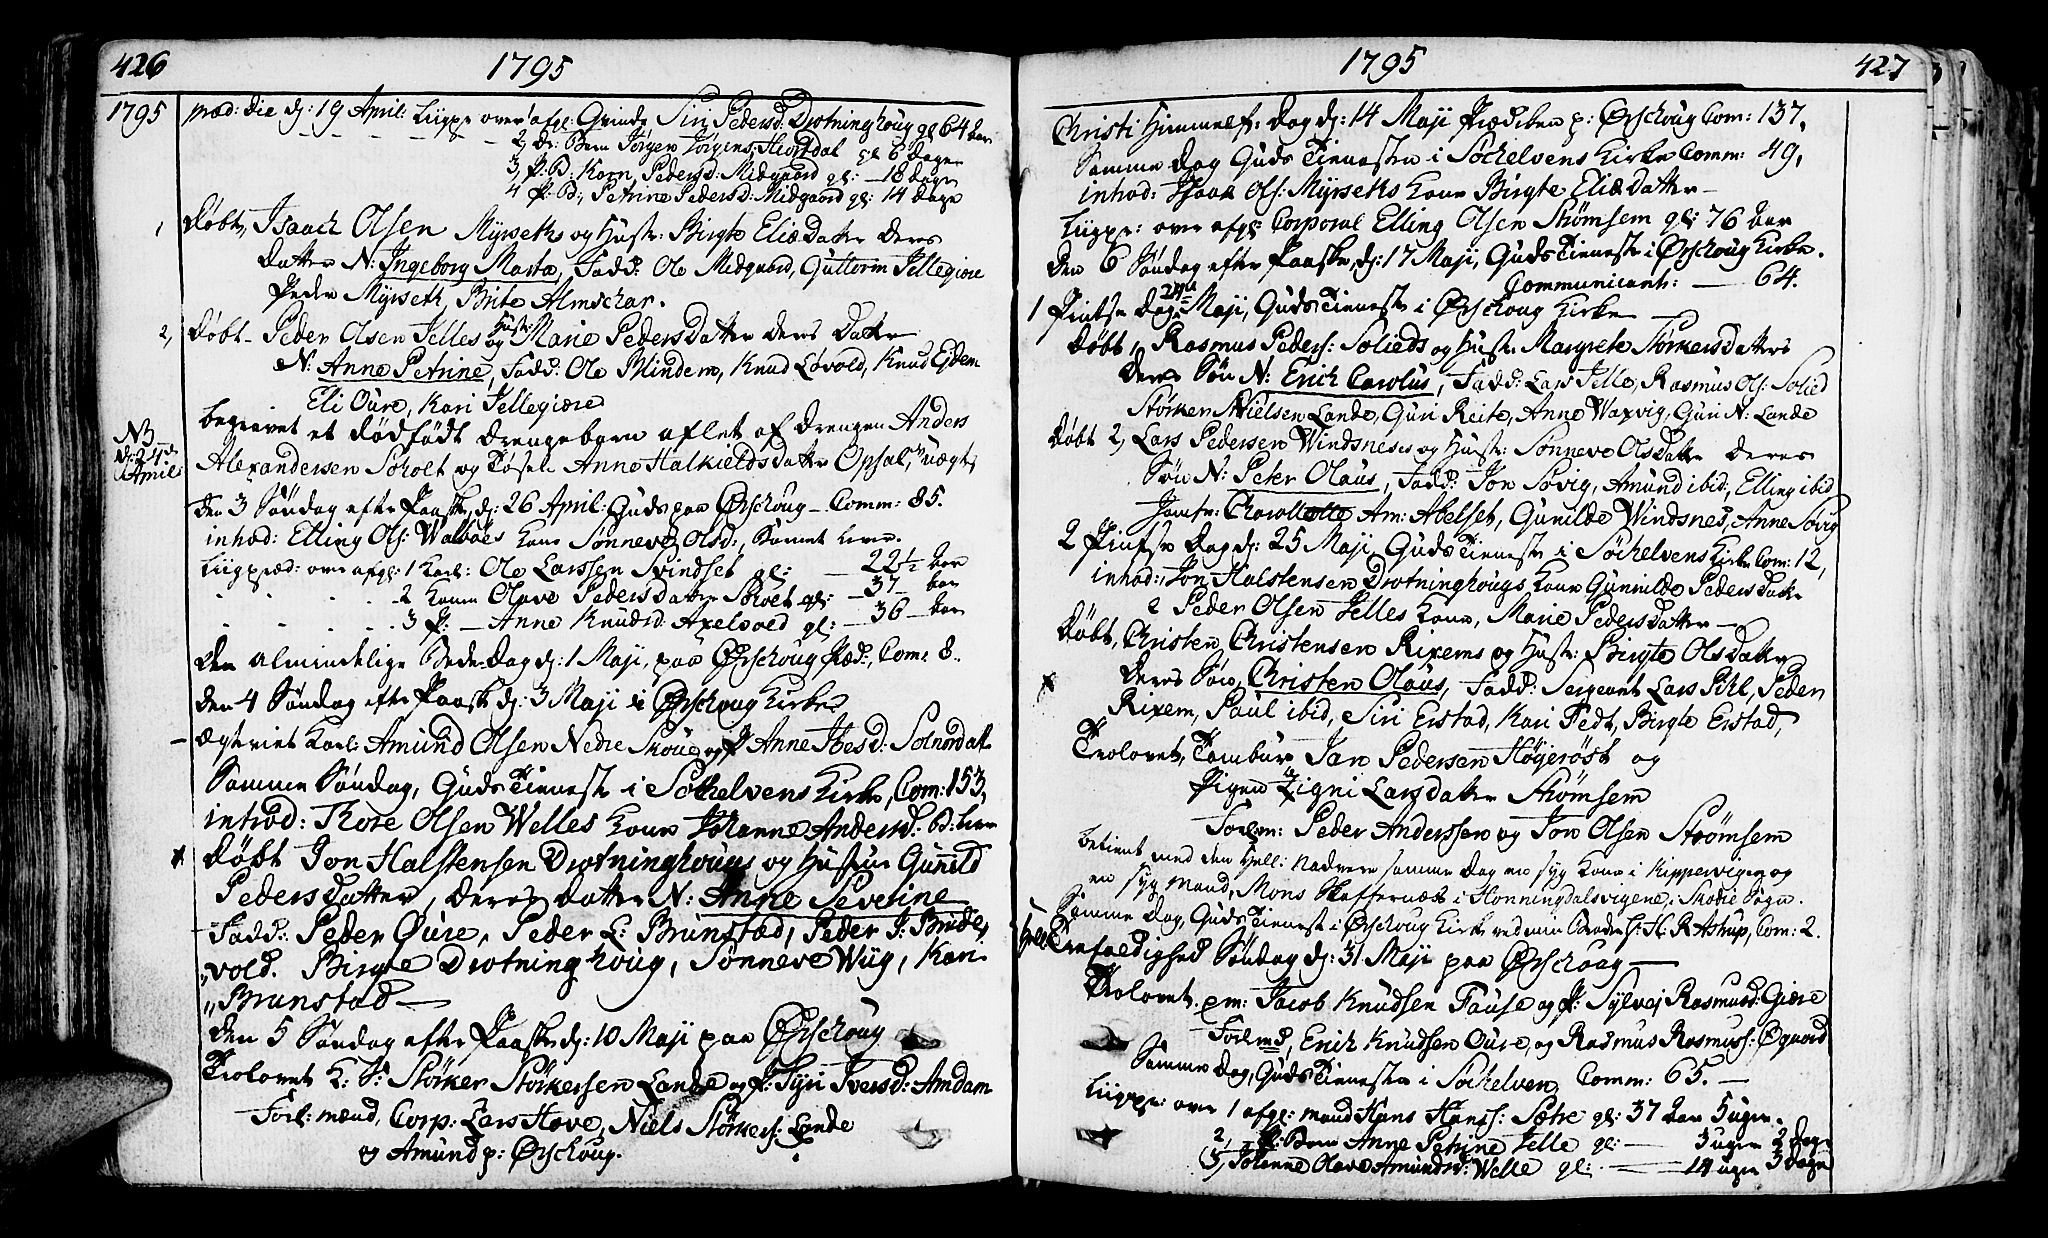 426
1795
1795 mæd: die dj: 19 April: Liigpr over afgl: Qvinde Siri Pedersd: Drotninghoug gl 64 aar
2, Dr: Barn Jørgen Jørgens: Hiortdal gl 6 dager
3, P: B: Karn Pedersd: Midgaard gl: — 18 dage
4 P: B: Petrine Pedersd: Midgaard gl: 14 dage
1 døbt, Isaach Olsen Myrseths og Hustr: Birgte Eliædatter deres
datter N: Ingeborg Marta, Fadd: Ole Midgaard, Guttorm Jellegiere
Peder Myrseth, Brite Almschar.
2, døbt – Peder Olsen Jelles og Hustr: Marie Pedersdatter deres datter
N: Anne Petrine, Fadd: Ole Blindem, Knud Løvold, Knud Ejdem
Eli Oure, Kari Jellegiere
NB dj: 24de April begravet et dødfødt drengebarn aflet af drengen Anders
Alexandersen Scholt og Tøsen Anne Halkieldsdatter Opsal, uægt:
den 3 Søndag efter Paaske, dj: 26 April: Guds paa Ørschoug – Comm: 85.
inthod: Elling Ols: Walbøes Kone Sønneve Olsd:,
Liigpræd: over afgl: 1 Karl: Ole Larssen Svindset gl: — 22½ aar
2 Konen Olave Pedersdatter Scholt gl: — 37 — aar
3 P: — Anne Knudsd: Axelvold gl: — 36 — aar
den almindelige Bede-dag dj: 1 Maji, paa Ørschoug Præd:, Com: 8.
den 4 Søndag efter Paaske dj: 3 Maji i Ørschoug Kirke
– Ægteviet Karl: Amund Olsen Nedre Skoue og P: Anne Ibesd: Solnordal
Samme Søndag, Guds Tieneste i Søchelvens Kirke, Com: 153,
inthod: Thore Olsen Welles Kone Johanne Andersd:
døbt Jon Halstensen Drotninghougs og Hustrue Gunnild
Pedersdatter, deres datter N: Anne Severine
Fadd: Peder Oure, Peder L: Brunstad, Peder J: Brude,
„vold. Birgte Drotninghoug, Sønneve Wiig, Kari
„Brunstad —
den 5 Søndag efter Paaske dj: 10 Maji paa Ørschoug
Trolovet K: S: Størker Størkersen Lande og P: Syri Iversd: Amdam
Forl: mænd, Corp: Lars Hove, Niels Størkers: Lande
og Amund p: Ørschoug.
1795
427
Christi Himmelf: dag dj: 14 Maji Prædiken p: Ørschoug Com: 137,
Samme dag Guds Tieneste i Søchelvens Kirke Comm: 49,
inthod: Isaac Ols: Myrseths Kone Birgte Eliædatter —
Liigpr: over afgl: Corporal Elling Olsen Strømsem gl: 76 aar
den 6 Søndag efter Paaske, dj: 17 Maji, Guds Tieneste i Ørschoug Kirke.
Communicant: — 64.
1 Pintse dag 24de Maji, Guds Tieneste i Ørschoug Kirke —
døbt, Rasmus Peders: Solieds og Hustr: Margrete Størkersdatters
deres Søn N: Erich Carolus, Fadd: Lars Jelle, Rasmus Ols: Solied
Størker Nielsen Lande, Guri Reite, Anne Waxvig, Guri N: Lande
døbt 2, Lars Pedersen Windsnes og Hustr: Sønneve Olsdatter deres
Søn N: Peter Olaus, Fadd: Jon Søvig, Amund ibid, Elling ibid
Jomfr: Charollotte Am: Abelset, Gunilde Windsnes, Anne Søvig
2 Pintse dag dj: 25 Maji, Guds Tieneste i Søchelvens Kirke Com: 12,
inthod: Jon Halstensen Drotninghougs Kone Gunnilde Pedersdatter
2 Peder Olsen Jelles Kone, Marie Pedersdatter —
døbt, Christen Christensen Rixems og Hustr: Birgte Olsdatter
deres Søn, Christen Olaus, Fadd: Sergeant Lars Pihl, Peder
Rixem, Paul ibid, Siri Erstad, Kari Fedt, Birgte Erstad,
Trolovet, Tambur Jan Pedersen Høgerøst og
Pigen Signi Larsdatter Strømsem
Forlm: Peder Anderssen og Jon Olsen Strømsem
betient med den Hell: Nadvere samme dag en syg Kone i Kippervigen og
en syg mand, Mons Skeffernæs i Honningdalsvigen i Skodie Sogn.
Samme dag, Guds Tieneste i Ørschoug Kirke ved min Broder Hr: H: R Astrup, Com: 2.
Hell: Trefoldighed Søndag dj: 31 Maji paa Ørschoug —
Trolovet. sm: Jacob Knudsen Fause og P: Sylvej Rasmusd: Giære
Forlmd, Erich Knudsen Oure, og Rasmus Rasmuss: Øgaard
Samme dag, Guds Tieneste i Søchelven, Comm: 65. —
Liigpr: over 1 afgl: mand Hans Hanss: Sætre gl: 37 aar 5 uger.
2, — P: Barn Anne Petrine Jelle gl: — 3 uger 2 dage
3, Johanne Olave Amundsd: Welle gl: — 14 uger 3 dage